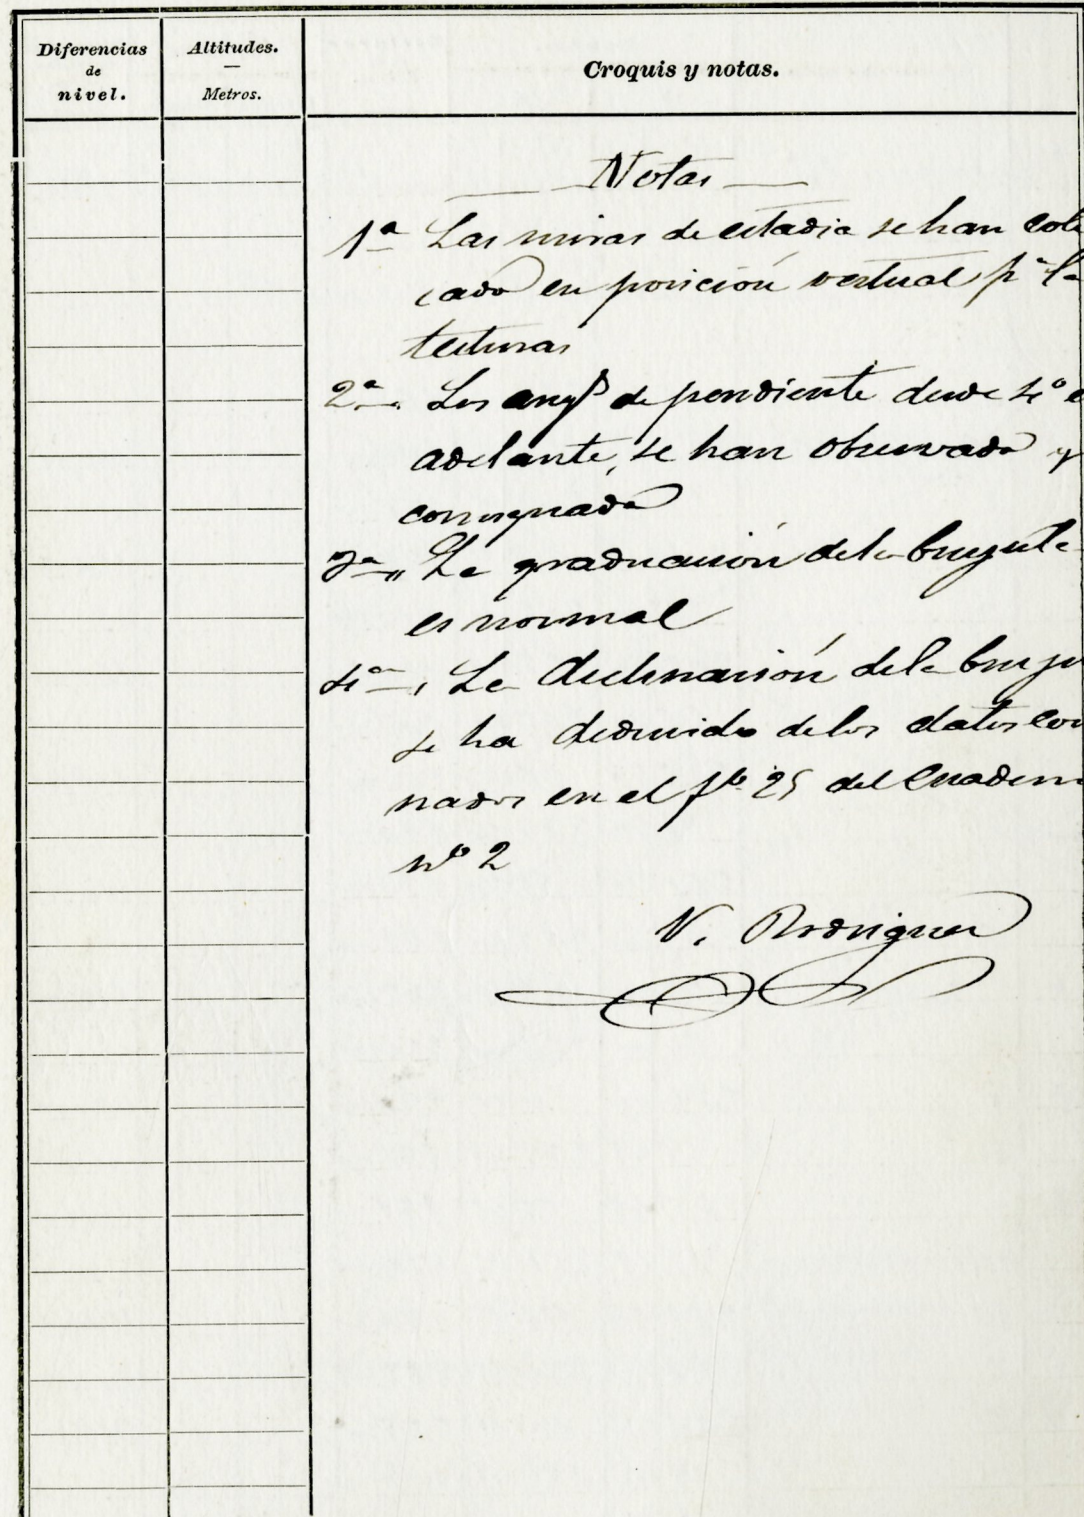 Diferencias
de
nivel.
Altitudes.
—
Metros.
Croquis y notas.
Notas
1ª Las miras de estadia se han colo
cado en posición vertical pª la
lecturas
2ª Los angs de pendiente desde 4º e
adelante, se han observado y
consignado
3ª La graduación de la brujula
es normal
4ª La declinación de la bruju
se ha deducido de los datos con
nados en el fº 25 del Cuadern
nº 2
V. Rodriguez